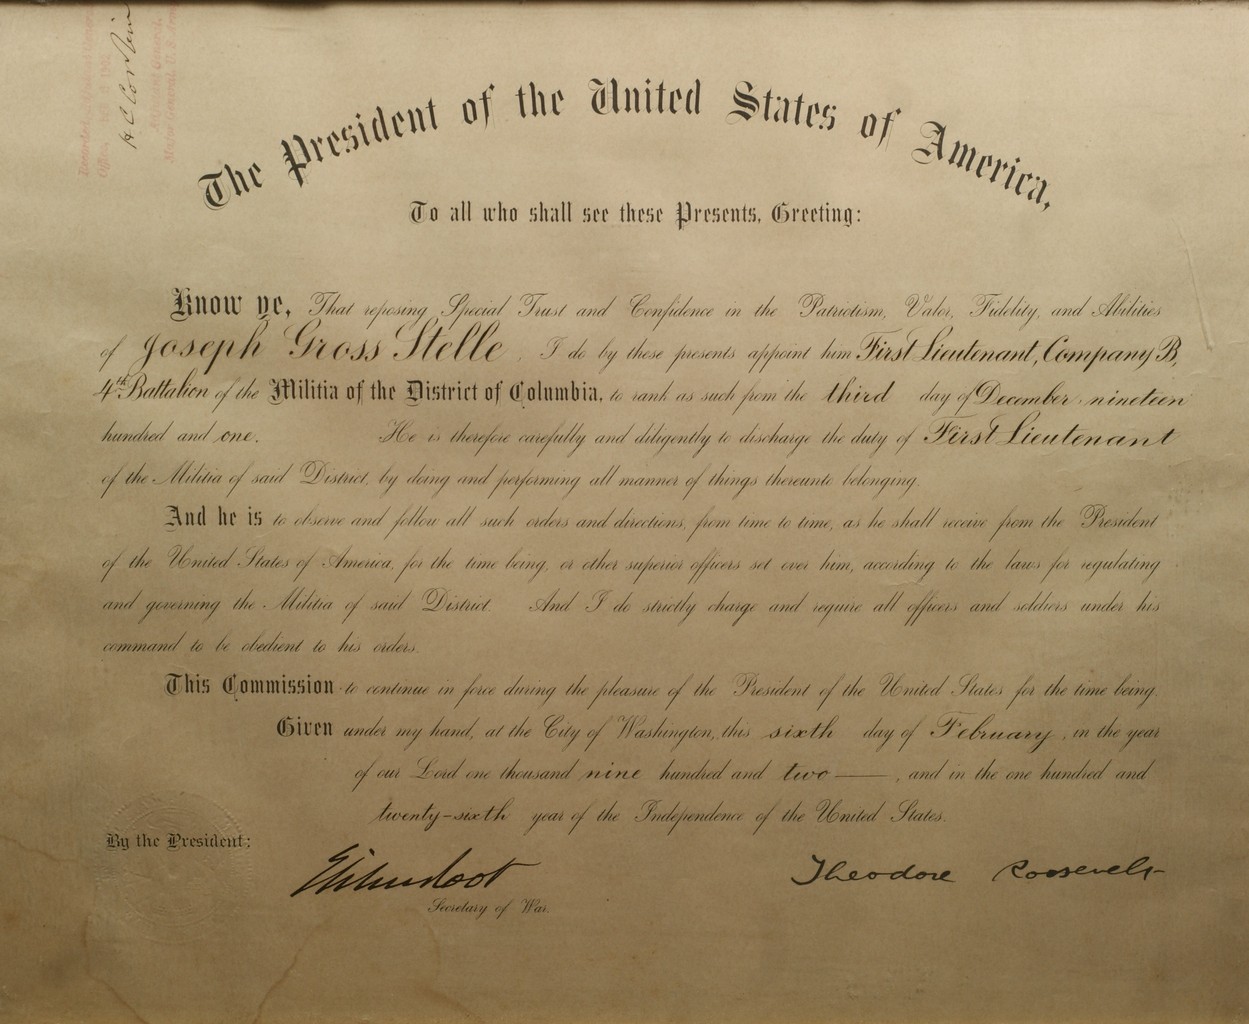 The President of the United States of America,
To all who shall see these Presents, Greeting:
Know ye, That reposing Special Trust and Confidence in the Patriotism, Valor, Fidelity, and Abilities
of Joseph Gross Stelle, I do by these presents appoint him First Lieutenant, Company B,
4th Battalion of the Militia of the District of Columbia, to rank as such from the third day of December nineteen
hundred and one. He is therefore carefully and diligently to discharge the duty of First Lieutenant
of the Militia of said District, by doing and performing all manner of things thereunto belonging.
And he is to observe and follow all such orders and directions, from time to time, as he shall receive from the President
of the United States of America, for the time being, or other superior officers set over him, according to the laws for regulating
and governing the Militia of said District. And I do strictly charge and require all officers and soldiers under his
command to be obedient to his orders.
This Commission to continue in force during the pleasure of the President of the United States for the time being.
Given under my hand, at the City of Washington, this sixth day of February, in the year
of our Lord one thousand nine hundred and two —, and in the one hundred and
twenty-sixth year of the Independence of the United States.
By the President:
Elihu Root
Secretary of War.
Theodore Roosevelt
H C Corbin
Adjutant General,
Major General, U. S. Army